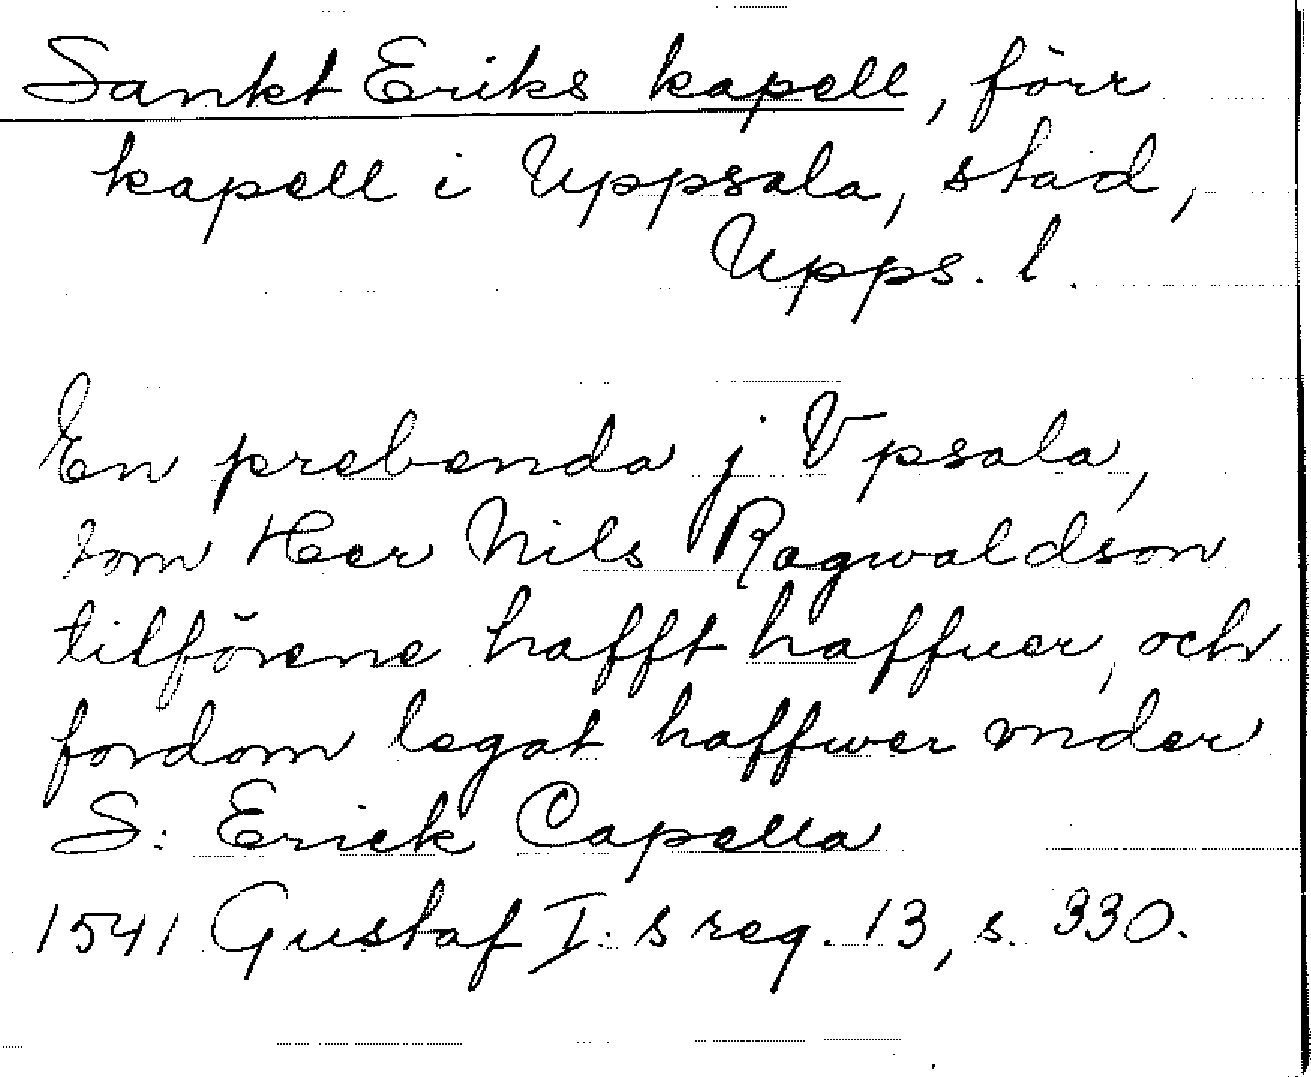 Sankt Eriks kapell, förr
kapell i Uppsala, stad,
Upps. l.
En prebenda j Vpsala,
som Her Nils Ragwaldson
tilförene hafft haffuer, och
fordom legat haffwer vnder
S: Erick Capella
1541 Gustaf I:s reg. 13, s. 330.